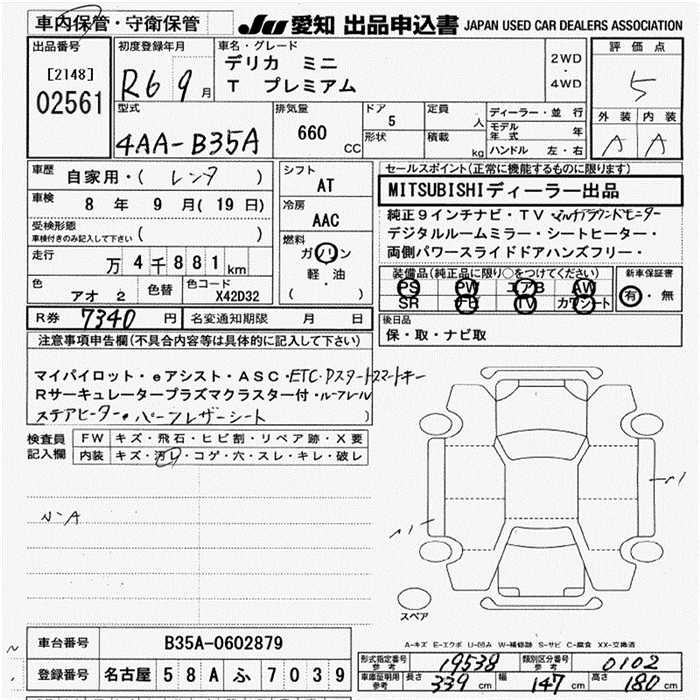 車内保管・守衛保管
JU 愛知 出品申込書 JAPAN USED CAR DEALERS ASSOCIATION
出品番号
[2148]
02561
初度登録年月
R6 9月
車名・グレード
デリカ ミニ
T プレミアム
2WD
・
4WD
評価点
5
外装 内装
A A
型式
4AA-B35A
排気量
660 CC
ドア
5
形状
定員
人
積載
kg
ディーラー・並行
モデル年式 年
ハンドル 左・右
車歴
自家用・( レンタ )
車検
8 年 9 月(19 日)
受検形態
車検付きのみ記入して下さい ( )
走行
万 4 千 881 km
色
アオ 2
色替
色コード
X42D32
シフト
AT
冷房
AAC
燃料
ガソリン
軽・油
( )
セールスポイント(正常に機能するものに限ります)
MITSUBISHIディーラー出品
純正9インチナビ・TV マルチアラウンドモニター
デジタルルームミラー・シートヒーター・
両側パワースライドドアハンズフリー・
装備品(純正品に限り○をつけてください)
PS PW エアB AW
SR ナビ TV カワシート
新車保証書
有・無
R券 7340 円
名変通知期限 月 日
後日品
保・取・ナビ取
注意事項申告欄(不具合内容等は具体的に記入して下さい)
マイパイロット・eアシスト・ASC・ETC・Pスタートスマートキー
Rサーキュレータープラズマクラスター付・ルーフレール
ステアヒーター・パーフレザーシート
検査員記入欄
FW キズ・飛石・ヒビ割・リペア跡・X要
内装 キズ・汚レ・コゲ・穴・スレ・キレ・破レ
N-A
スペア
A-キズ E-エクボ U-凹み W-補修跡 S-サビ C-腐食 XX-交換済
車台番号 B35A-0602879
登録番号 名古屋 58A ふ 7039
形式指定番号 参考 19538
類別区分番号 参考 0102
車庫証明用 参考
長さ 339 cm 幅 147 cm 高さ 180 cm